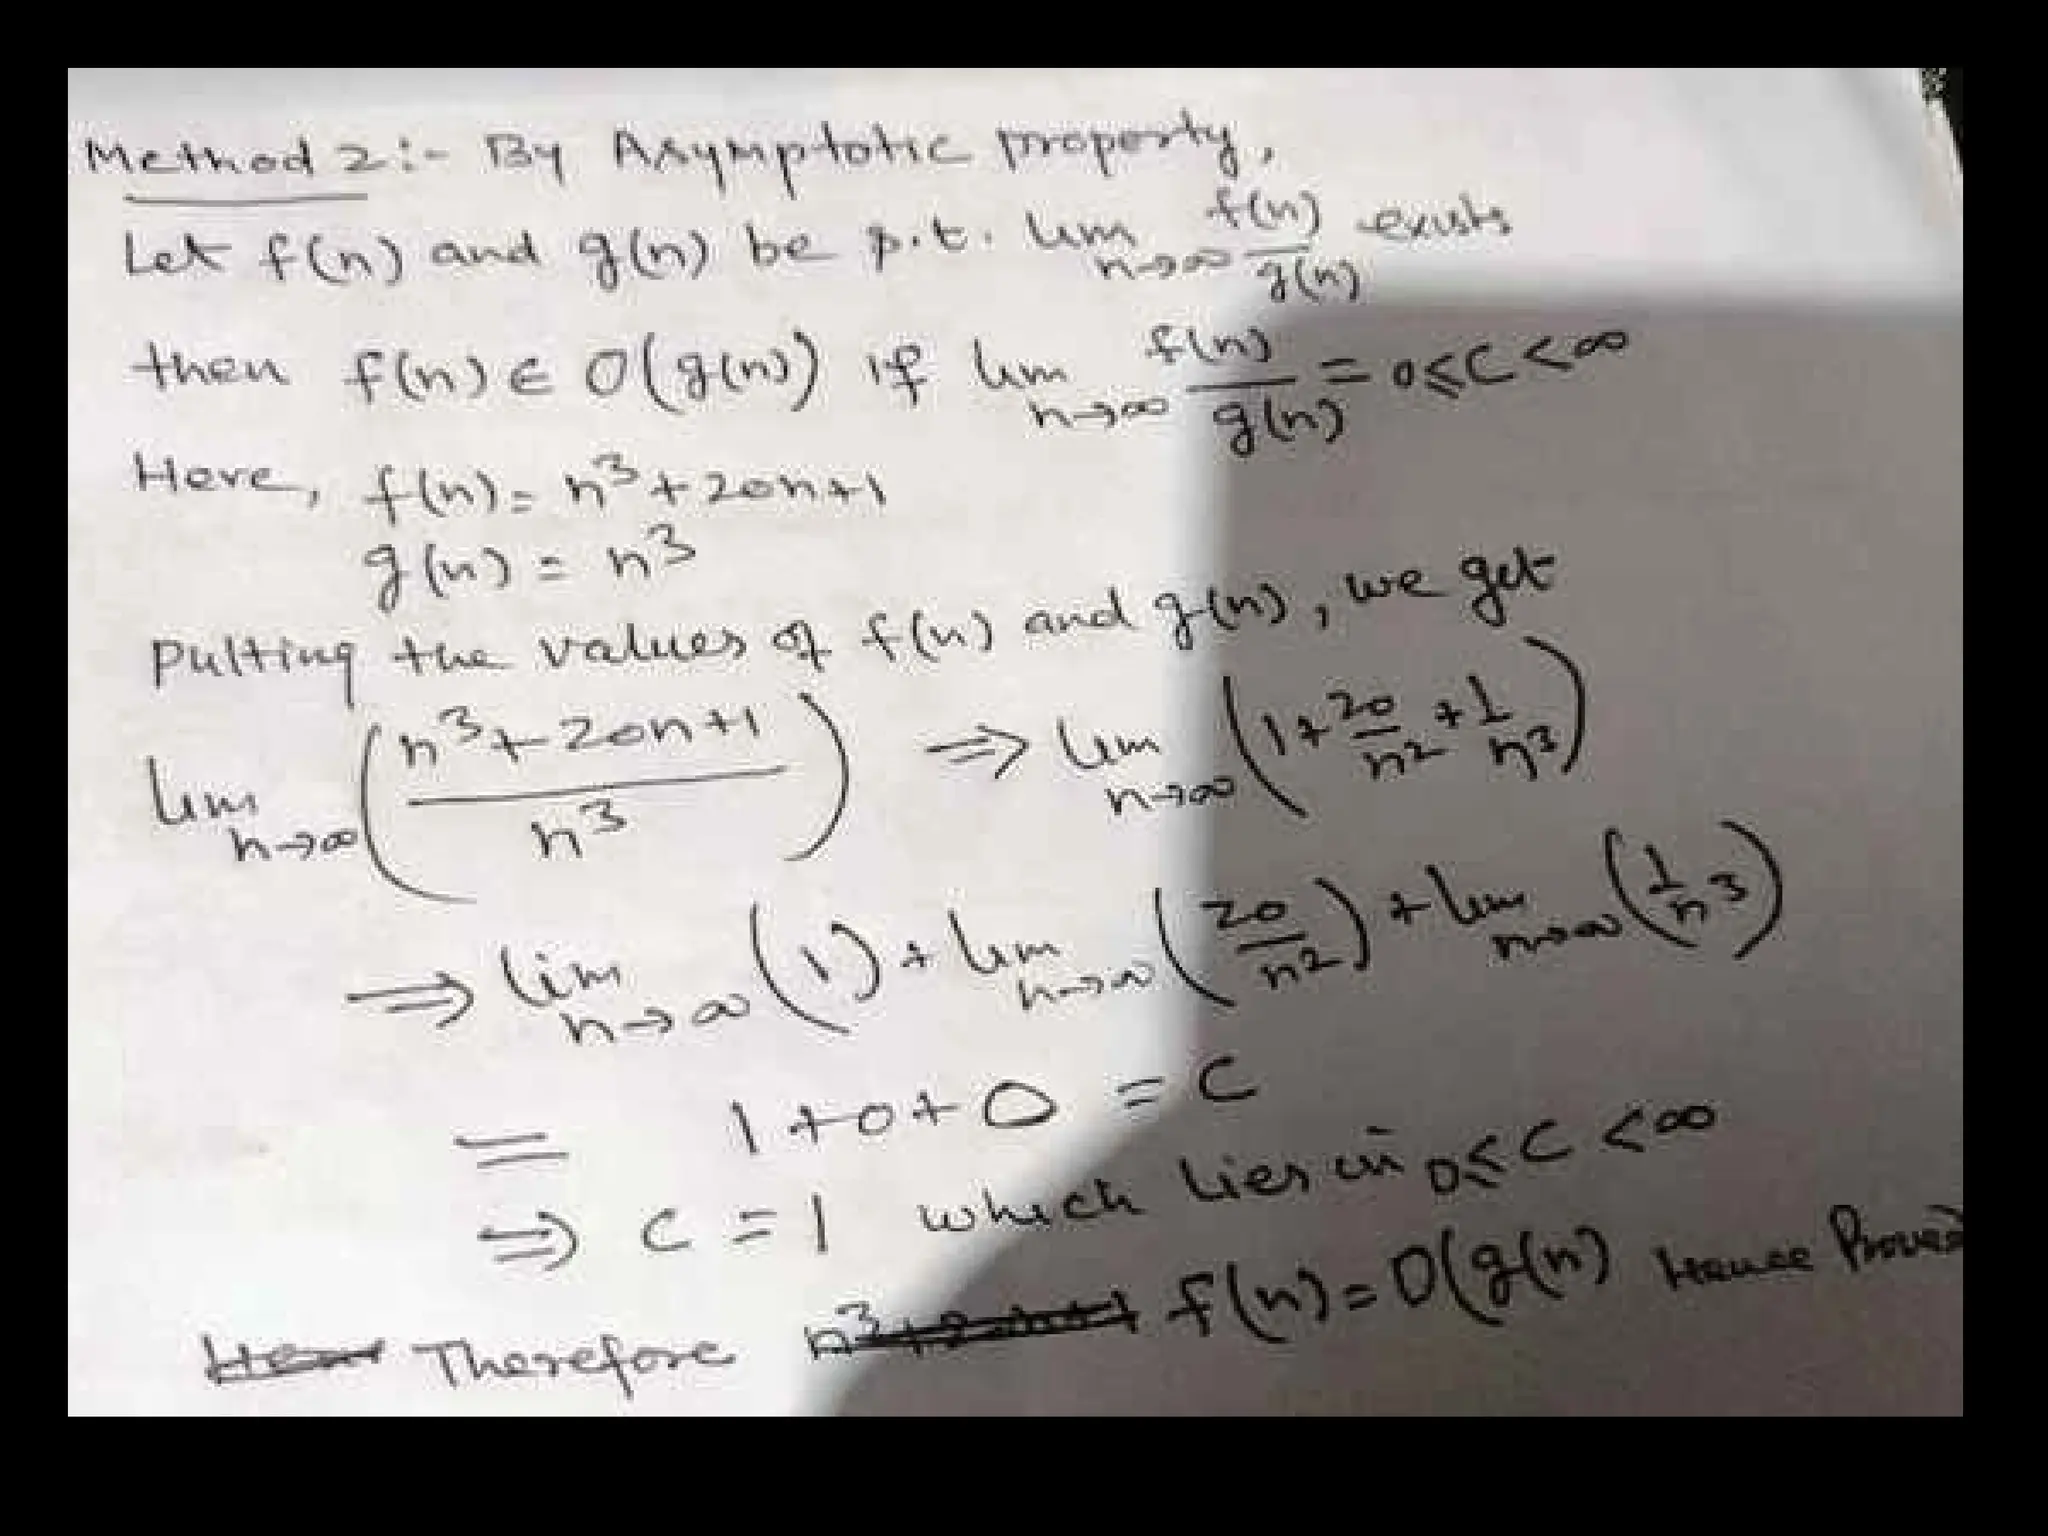 Method 2:- By Asymptotic property,
Let f(n) and g(n) be s.t. lim n→∞ f(n)/g(n) exists
then f(n) ∈ O(g(n)) if lim n→∞ f(n)/g(n) = 0≤C<∞
Here, f(n) = n³+20n+1
g(n) = n³
Putting the values of f(n) and g(n), we get
lim n→∞ ((n³+20n+1)/n³) ⇒ lim n→∞ (1+20/n²+1/n³)
⇒ lim n→∞ (1) + lim n→∞ (20/n²) + lim n→∞ (1/n³)
= 1+0+0 = C
⇒ C = 1 which lies in 0≤C<∞
Therefore f(n)=O(g(n) Hence Proved